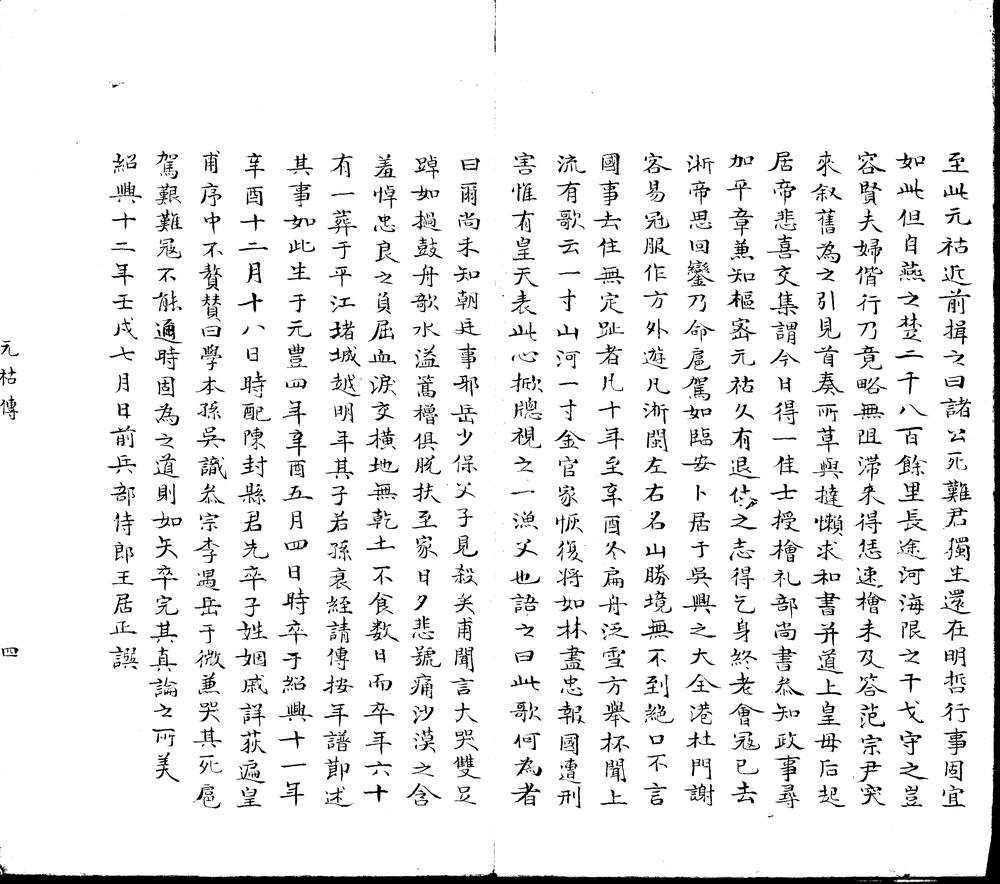 至此元祜近前揖之曰諸公死難君獨生還在明哲行事固宜
如此但自燕之楚二千八百餘里長途河海限之干戈守之豈
容賢夫婦偕行乃竟略無阻滯来得恁速檜未及答范宗尹突
來叙舊為之引見首奏所草與撻懶求和書并道上皇毋后起
居帝悲喜交集謂今日得一佳士授檜礼部尚書叅知政事尋
加平章蒹知樞宻元祜久有退休之志得乞身終老會冦已去
淅帝思回鑾乃命扈駕如臨安卜居于吳興之大全港杜門謝
客易冠服作方外遊凡淅閩左右名山勝境無不到絕口不言
國事去住無定趾者凡十年至辛酉冬扁舟泛雪方舉杯聞上
流有歌云一寸山河一寸金官家恢復将如林盡忠報國遭刑
害惟有皇天表此心掀牕視之一漁父也語之曰此歌何為者
曰爾尚未知朝廷事邪岳少保父子見殺矣甫聞言大哭雙足
踔如撾鼓舟欹水溢蒿櫓俱脱扶至家日夕悲號痛沙漠之含
羞悼忠良之負屈血淚交橫地無乾土不食数日而卒年六十
有一葬于平江堵城越明年其子若孫衰絰請傳按年譜節述
其事如此生于元豐四年辛酉五月四日時卒于紹興十一年
辛酉十二月十八日時配陳封縣君先卒子姓姻戚詳荻遍皇
甫序中不贅賛曰學本孫吳識叅宗李遇岳于微蒹哭其死扈
駕艱難冦不能逼時固為之道則如矢卒完其真論之所美
紹興十二年壬戌七月日前兵部侍郎王居正譔
元祜傳
四